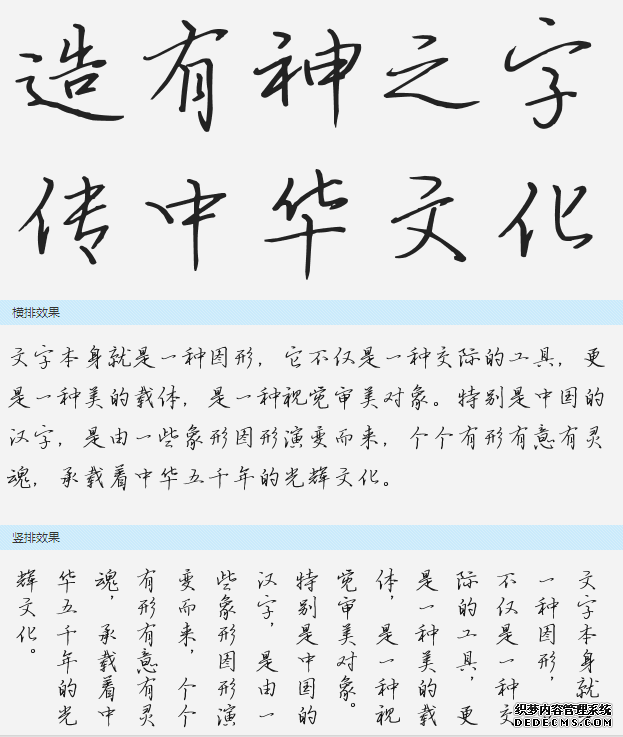 造有神之字
传中华文化
横排效果
文字本身就是一种图形，它不仅是一种交际的工具，更
是一种美的载体，是一种视觉审美对象。特别是中国的
汉字，是由一些象形图形演变而来，个个有形有意有灵
魂，承载着中华五千年的光辉文化。
竖排效果
文字本身就是
一种图形，
不仅是一种交
际的工具，更
是一种美的载
体，是一种视
觉审美对象。
特别是中国的
汉字，是由一
些象形图形演
变而来，个个
有形有意有灵
魂，承载着中
华五千年的光
辉文化。
织梦内容管理系统
DEDECMS.COM